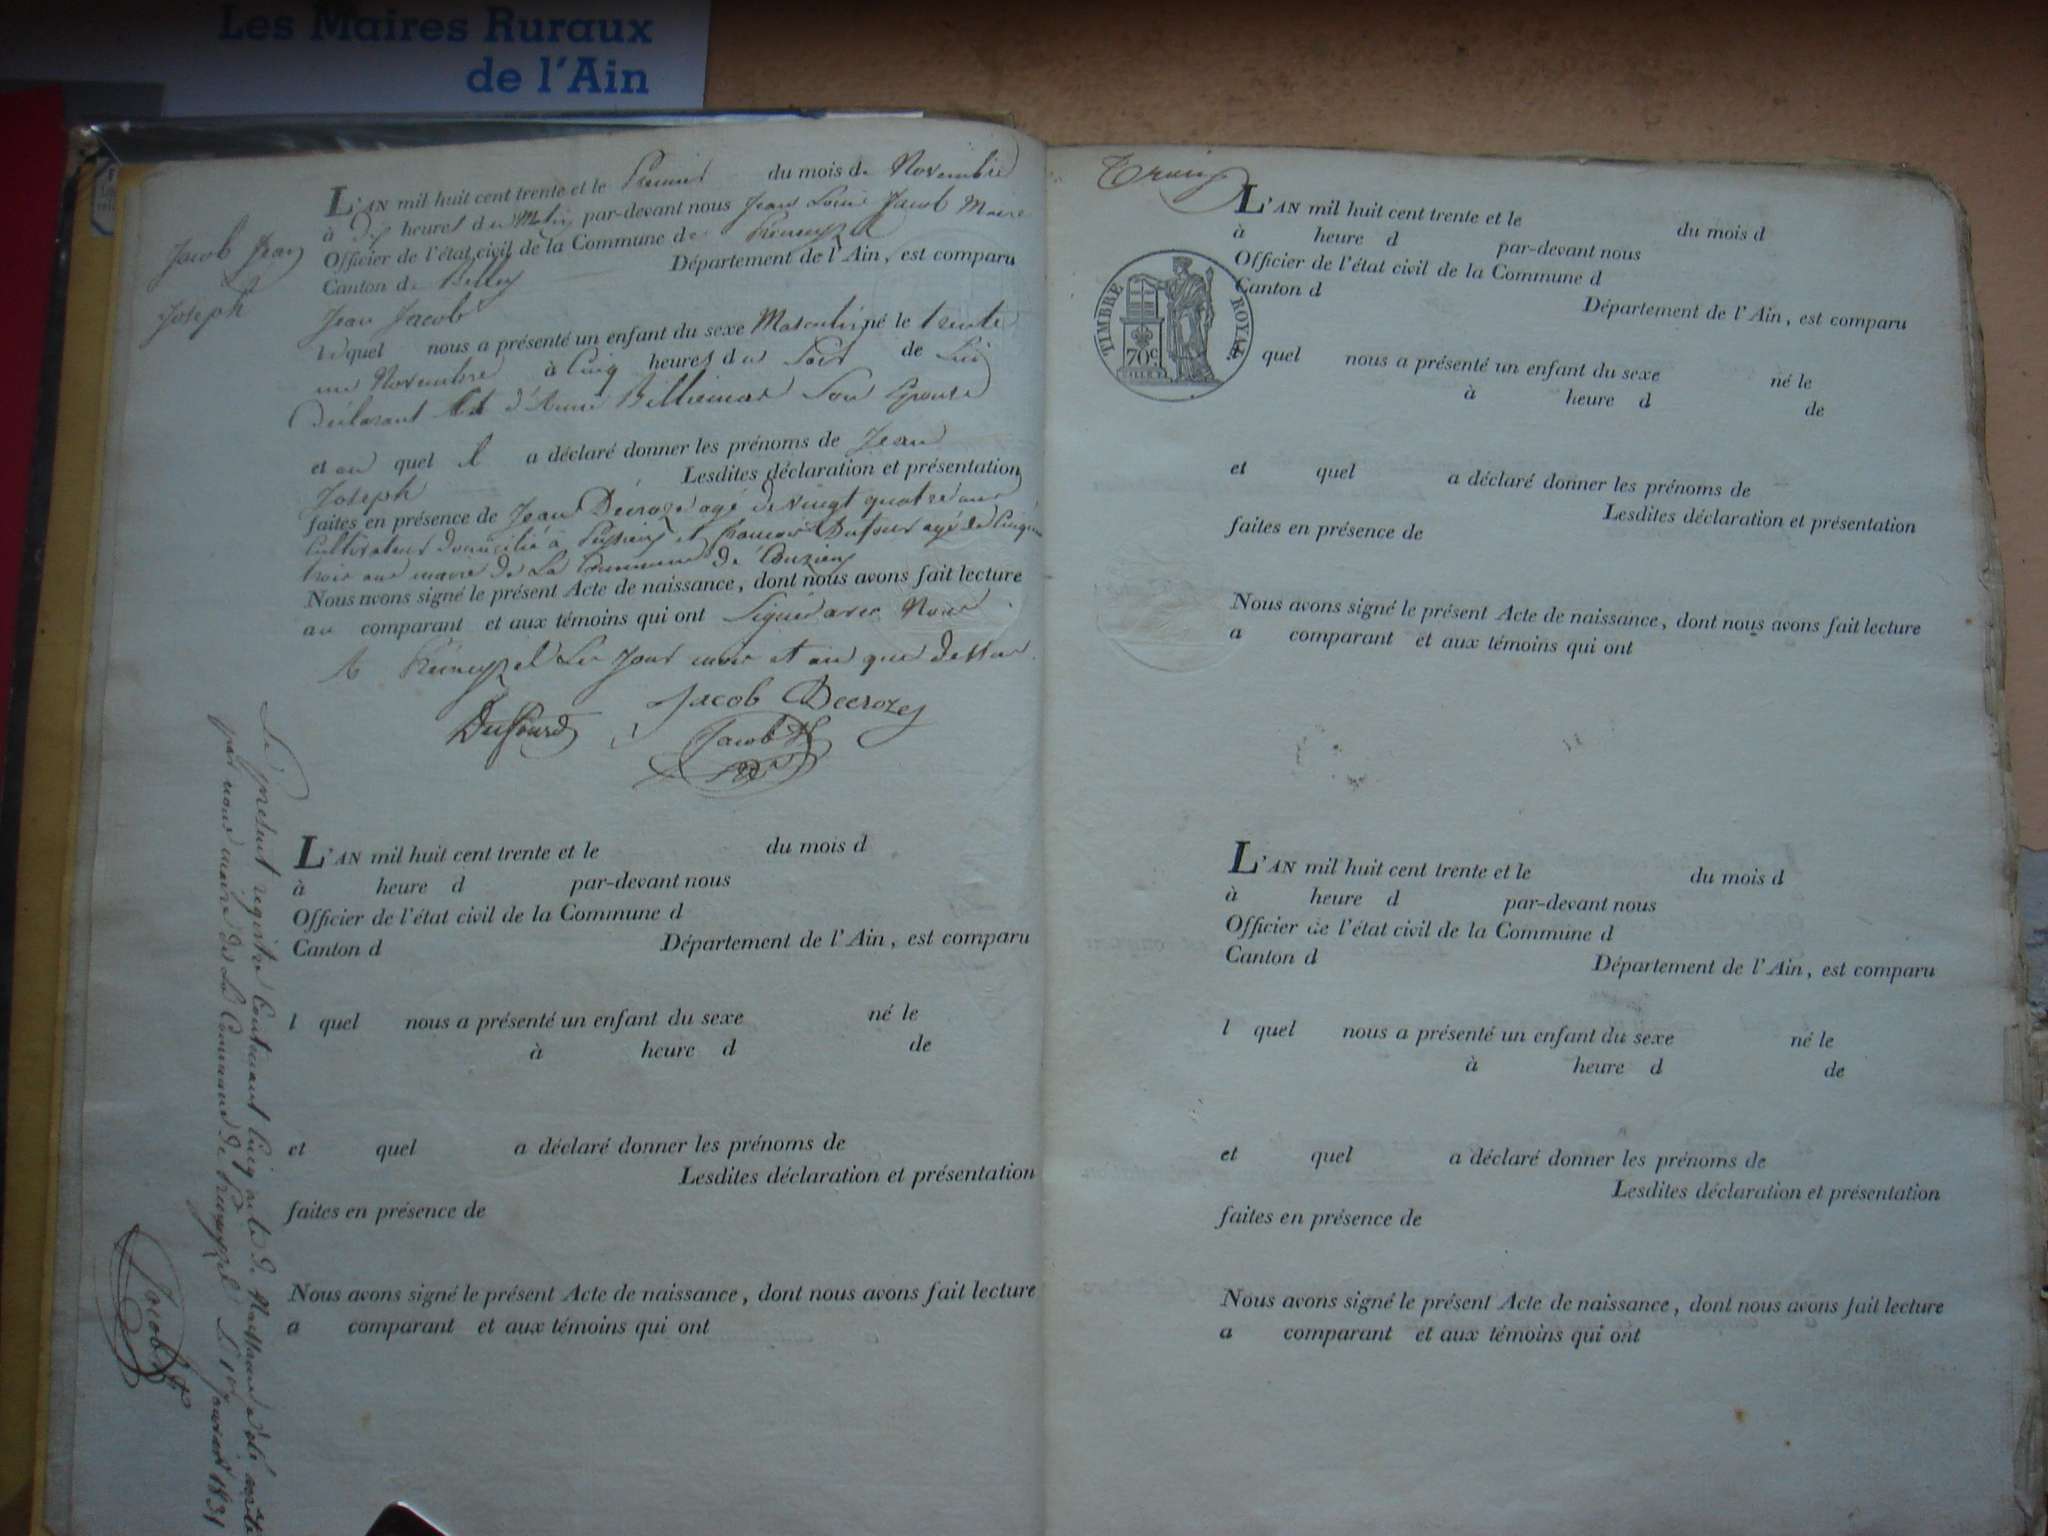 Les Maires Ruraux
de l'Ain
Jacob Jean
Joseph
L'AN mil huit cent trente et le Premier du mois de Novembre
à Dix heures du Matin par-devant nous Jean Louis Jacob Maire
Officier de l'état civil de la Commune de
Canton de Belley Département de l'Ain, est comparu
Jean Jacob
lequel nous a présenté un enfant du sexe Masculin né le trente
un Novembre à Cinq heures du Soir de Lui
Déclarant et d'Anne Son Epouse
et au quel il a déclaré donner les prénoms de Jean
Joseph Lesdites déclaration et présentation
faites en présence de Jean Decroze agé de vingt quatre ans
Cultivateur domicilié à et francois Dufour agé de Cinquante
trois ans maire de La Commune de
Nous avons signé le présent Acte de naissance, dont nous avons fait lecture
au comparant et aux témoins qui ont Signé avec Nous
A Le Jour mois et an que dessus
Jacob Decroze
Dufour
Jacob
L'AN mil huit cent trente et le du mois d
à heure d par-devant nous
Officier de l'état civil de la Commune d
Canton d Département de l'Ain, est comparu
l quel nous a présenté un enfant du sexe né le
à heure d de
et quel a déclaré donner les prénoms de
Lesdites déclaration et présentation
faites en présence de
Nous avons signé le présent Acte de naissance, dont nous avons fait lecture
a comparant et aux témoins qui ont
Le présent registre Contenant Cinq actes de Naissance a été arrêté
par nous maire de La Commune de Le 1er Janvier 1831
Jacob
TIMBRE ROYAL
70c
L'AN mil huit cent trente et le du mois d
à heure d par-devant nous
Officier de l'état civil de la Commune d
Canton d Département de l'Ain, est comparu
quel nous a présenté un enfant du sexe né le
à heure d de
et quel a déclaré donner les prénoms de
Lesdites déclaration et présentation
faites en présence de
Nous avons signé le présent Acte de naissance, dont nous avons fait lecture
a comparant et aux témoins qui ont
L'AN mil huit cent trente et le du mois d
à heure d par-devant nous
Officier de l'état civil de la Commune d
Canton d Département de l'Ain, est comparu
l quel nous a présenté un enfant du sexe né le
à heure d de
et quel a déclaré donner les prénoms de
Lesdites déclaration et présentation
faites en présence de
Nous avons signé le présent Acte de naissance, dont nous avons fait lecture
a comparant et aux témoins qui ont